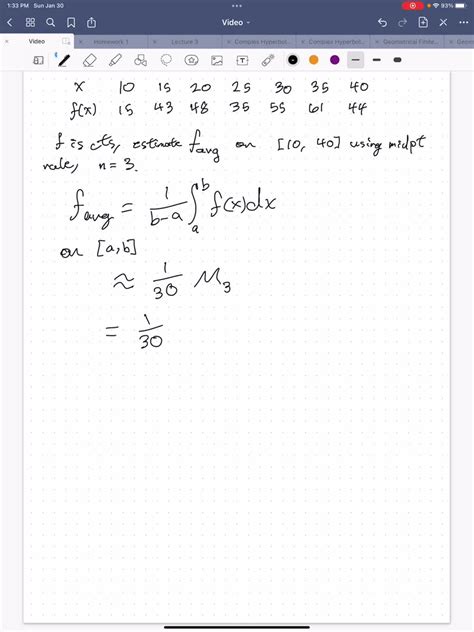 1:33 PM Sun Jan 30
93%
Video
Video
Homework 1
Lecture 3
Complex Hyperbol...
Complex Hyperbol...
Geometrical Finite...
x 10 15 20 25 30 35 40
f(x) 15 43 48 35 55 61 44
f is cts, estimate f_avg on [10, 40] using midpt
rule, n = 3.
f_avg = 1/(b-a) ∫_a^b f(x)dx
on [a,b]
≈ 1/30 M_3
= 1/30